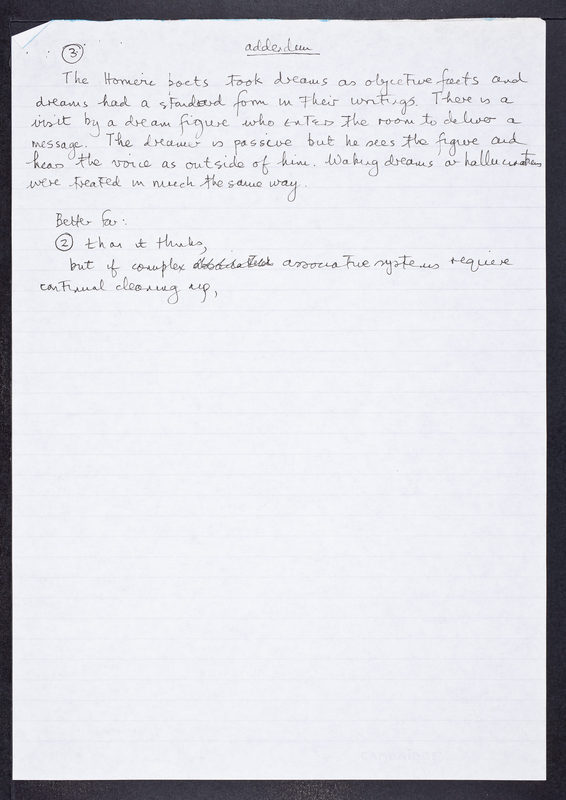 ③
addendum
The Homeric poets took dreams as objective facts and
dreams had a standard form in their writings. There is a
visit by a dream figure who enters the room to deliver a
message. The dreamer is passive but he sees the figure and
hears the voice as outside of him. Waking dreams or hallucinations
were treated in much the same way.
Better for:
② than it thinks,
but if complex associative systems require
continual cleaning up,